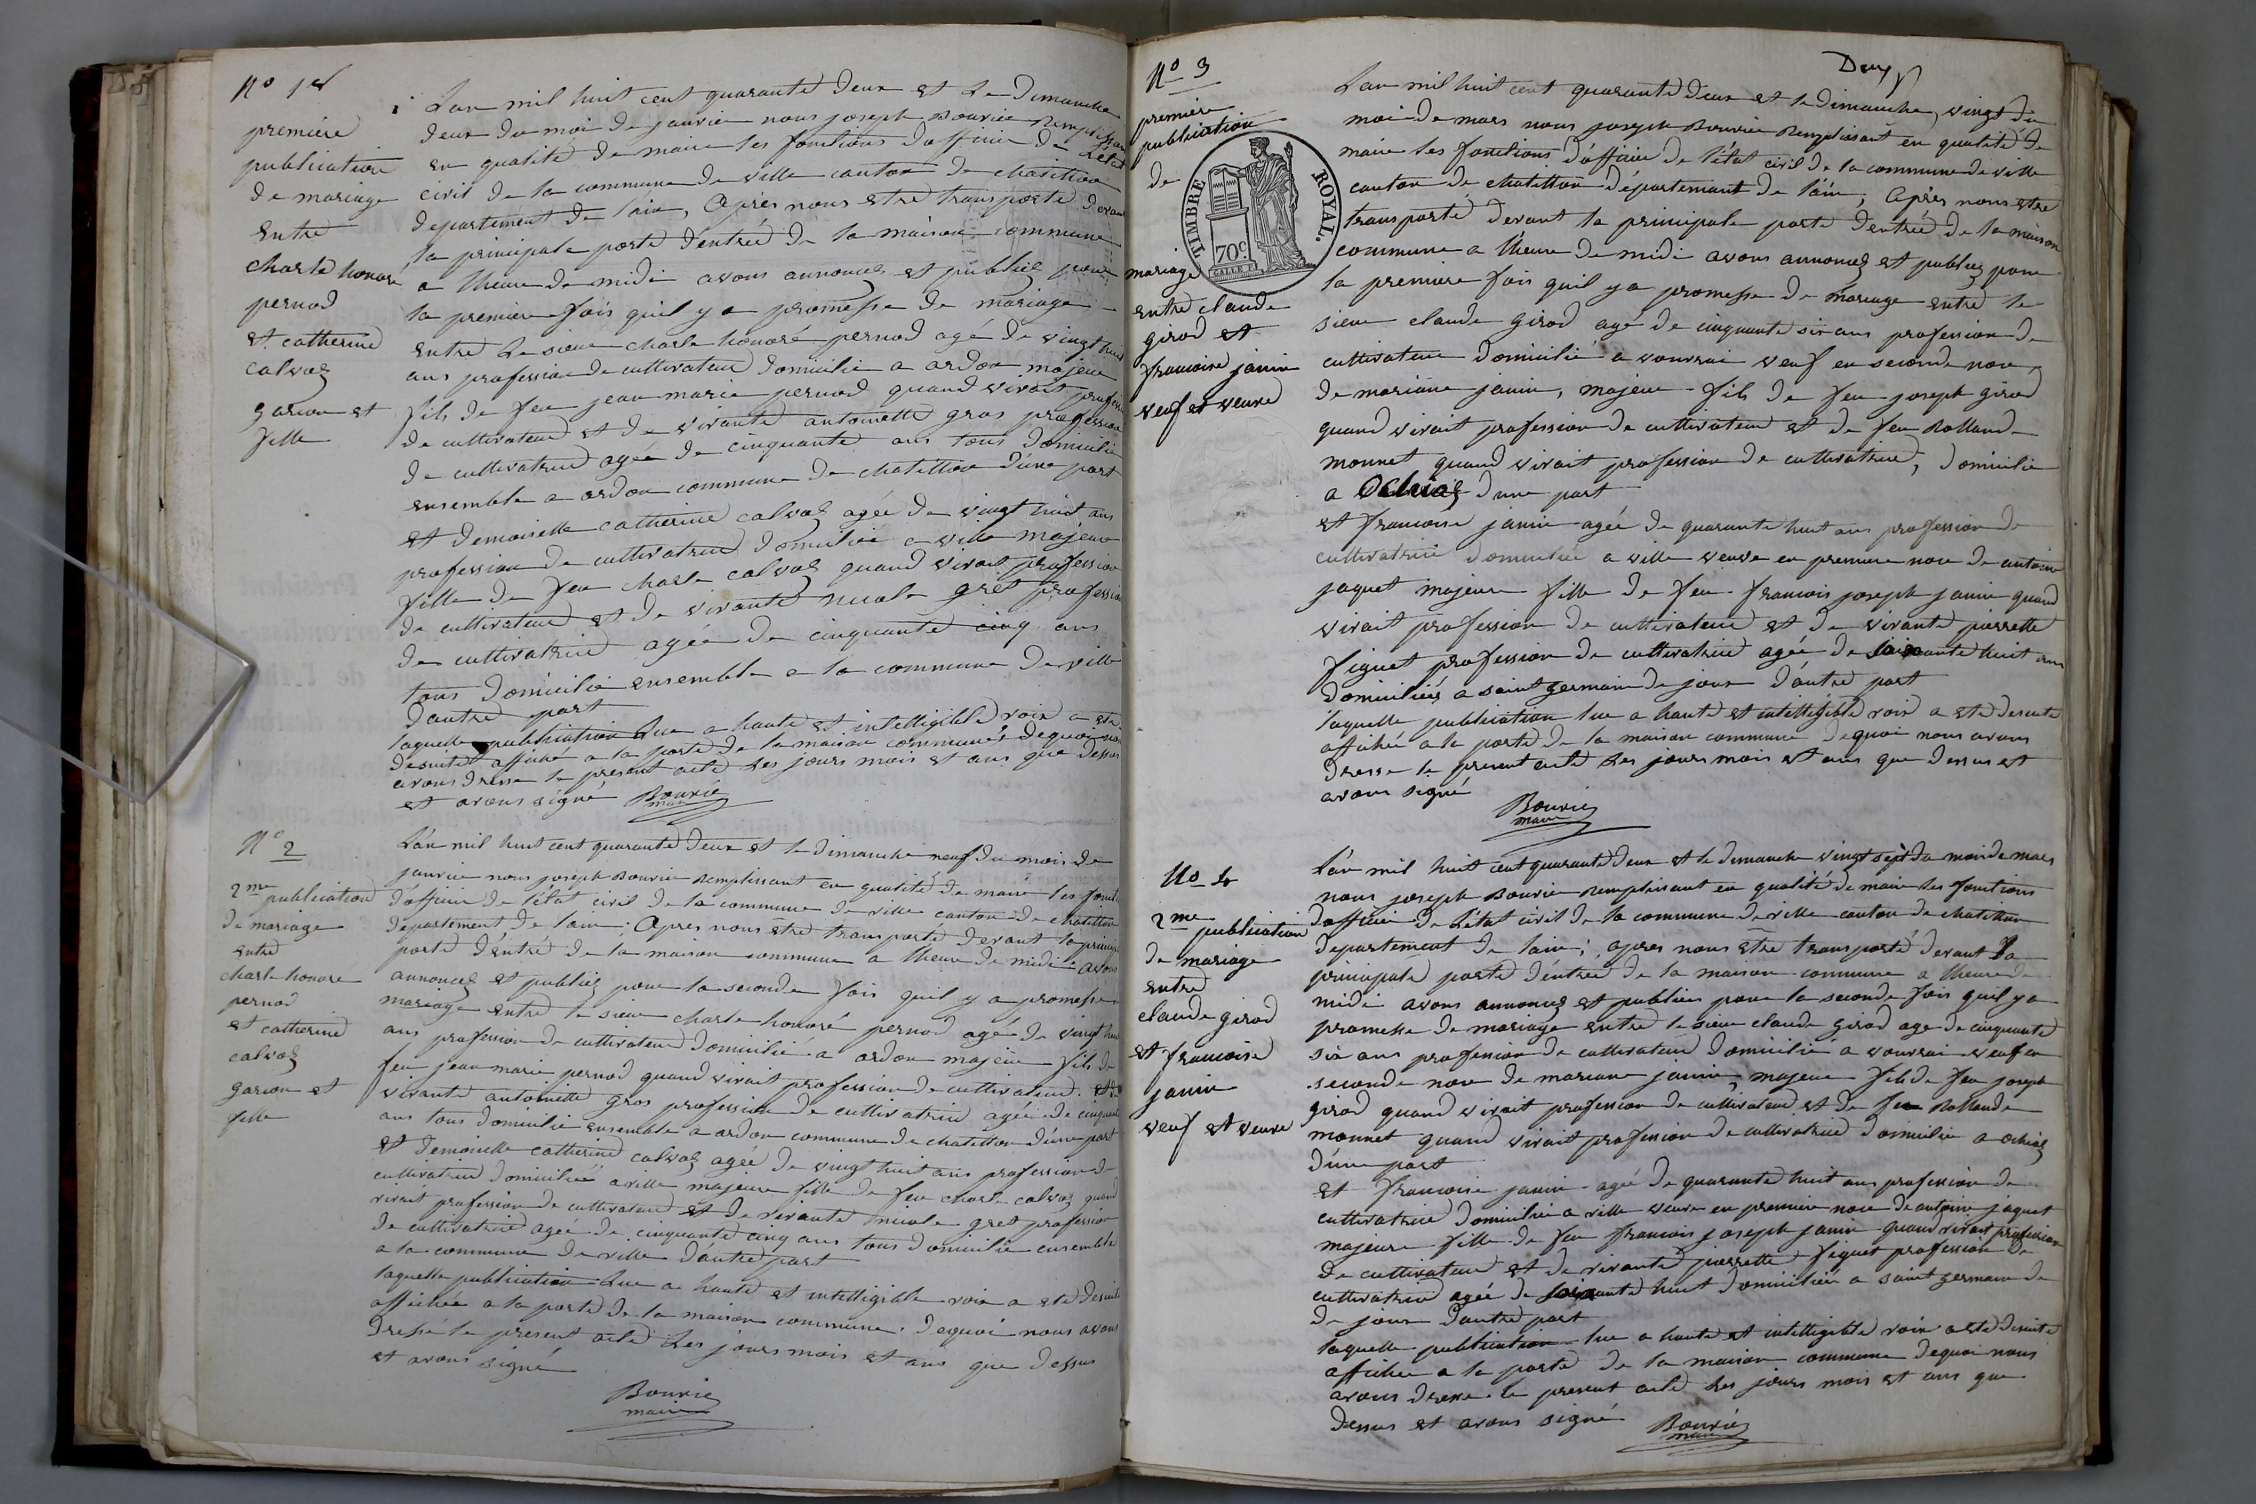 N° 1er
première
publication
de mariage
Entre
charle honoré
pernod
et catherine
calvas
garson et
fille
Lan mil huit cent quarante deux et Le Dimanche
deux du moi de janvier nous joseph Bouvier Remplissant
en qualité de maire les fonctions d'officier de Letat
civil de la commune de ville canton de chatillon
departement de lain, Après nous etre transporté devant
la principale porte d'entrée de la maison commune
a lheure de midi avons annoncez et publiez pour
la premiere fois quil y a promesse de mariage
entre Le sieur charle honoré pernod agé de vingt huit
ans profession de cultivateur domicilié a ardon majeur
fils de feu jean marie pernod quand vivait profession
de cultivateur et de vivante antoinette gros profession
de cultivatrice agée de cinquante ans tous domicilié
ensemble a ardon commune de chatillon d'une part
et demoiselle catherine calvas agée de vingt huit ans
profession de cultivatrice domiciliée a ville majeure
fille de feu charle calvas quand vivait profession
de cultivateur et de vivante nicole gret profession
de cultivatrice agée de cinquante cinq ans
tous domicilié ensemble a la commune de ville
dautre part
laquelle publication Lue a haute et intelligible voix a été
desuite affiché a la porte de la maison commune dequoi nous
avons dressé le présent acte Les jours mois et ans que dessus
et avons signé Bouvier
maire
N° 2
2me publication
de mariage
entre
charle honoré
pernod
et catherine
calvas
garson et
fille
L'an mil huit cent quarante deux et le dimanche neuf du mois de
janvier nous joseph Bouvier Remplissant en qualité de maire les fonctions
d'officier de l'état civil de la commune de ville canton de chatillon
département de lain. Apres nous être transporté devant la principale
porte d'entré de la maison commune a lheure de midi avons
annoncez et publiez pour la seconde fois quil y a promesse
mariage entre le sieur charle honoré pernod agé de vingt huit
ans profession de cultivateur domicilié a ardon majeur fils de
feu jean marie pernod quand vivait profession de cultivateur et de
vivante antoinette gros profession de cultivatrice agée de cinquante
ans tous domicilié ensemble a ardon commune de chatillon d'une part
et demoiselle catherine calvas agée de vingt huit ans profession de
cultivatrice domiciliée a ville majeure fille de feu charle calvas quand
vivait profession de cultivateur et de vivante nicole gret profession
de cultivatrice agée de cinquante cinq ans tous domicilié ensemble
a la commune de ville d'autre part
laquelle publication Lue a haute et intelligible voix a été desuite
affichée a la porte de la maison commune. dequoi nous avons
dressé le present acte Les jours mois et ans que dessus
et avons signé
Bouvier
maire
Deux
N° 3
première
publication
de
mariage
entre claude
girod et
francoise janin
veuf et veuve
TIMBRE ROYAL.
70c
Lan mil huit cent quarante deux et le dimanche vingt du
moi de mars nous joseph Bouvier Remplissant en qualité de
maire les fonctions d'officier de l'état civil de la commune de ville
canton de chatillon département de l'ain, Après nous etre
transporté devant la principale porte d'entrée de la maison
commune a l'heure de midi avons annoncez et publiez pour
la premiere fois quil y a promesse de mariage entre le
sieur claude girod agé de cinquante six ans profession de
cultivateur domicilié a vouvrai veuf en seconde noce
de mariane janin, majeur fils de feu joseph girod
quand vivait profession de cultivateur et de feu Rollande
monnet quand vivait profession de cultivatrice, domicilié
a Ochiaz d'une part
et francoise janin agée de quarante huit ans profession de
cultivatrice domiciliée a ville veuve en premiere noce de antoine
jaquet majeure fille de feu francois joseph janin quand
vivait profession de cultivateur et de vivante pierrette
figuet profession de cultivatrice agée de soixante huit ans
domiciliées a saint germain de joux d'autre part
laquelle publication lue a haute et intelligible voix a été desuite
affichée a la porte de la maison commune dequoi nous avons
dresse le present acte Les jours mois et ans que dessus et
avons signé
Bouvier
maire
N° 4
2me publication
de mariage
entre
claude girod
et francoise
janin
veuf et veuve
L'an mil huit cent quarante deux et le dimanche vingt sept du moi de mars
nous joseph Bouvier Remplissant en qualité de maire Les fonctions
d'officier de L'état civil de la commune de ville canton de chatillon
département de lain; après nous être transporté devant La
principale porte d'entrée de la maison commune a lheure de
midi avons annoncez et publiez pour la seconde fois quil y a
promesse de mariage entre le sieur claude girod age de cinquante
six ans profession de cultivateur domicilié a vouvrai veuf en
seconde noce de mariane janin, majeur fils de feu joseph
girod quand vivait profession de cultivateur et de feu Rollande
monnet quand vivait profession de cultivatrice domicilié a ochiaz
d'une part
et francoise janin agée de quarante huit ans profession de
cultivatrice domicilié a ville veuve en premiere noce de antoine jaquet
majeure fille de feu francois joseph janin quand vivait profession
de cultivateur et de vivante pierrette figuet profession de
cultivatrice agée de soixante huit domiciliée a saint germain de
de joux dautre part
laquelle publication lue a haute et intelligible voix a été desuite
affichée a la porte de la maison commune dequoi nous
avons dresse le present acte Les jours mois et ans que
dessus et avons signé Bouvier
maire